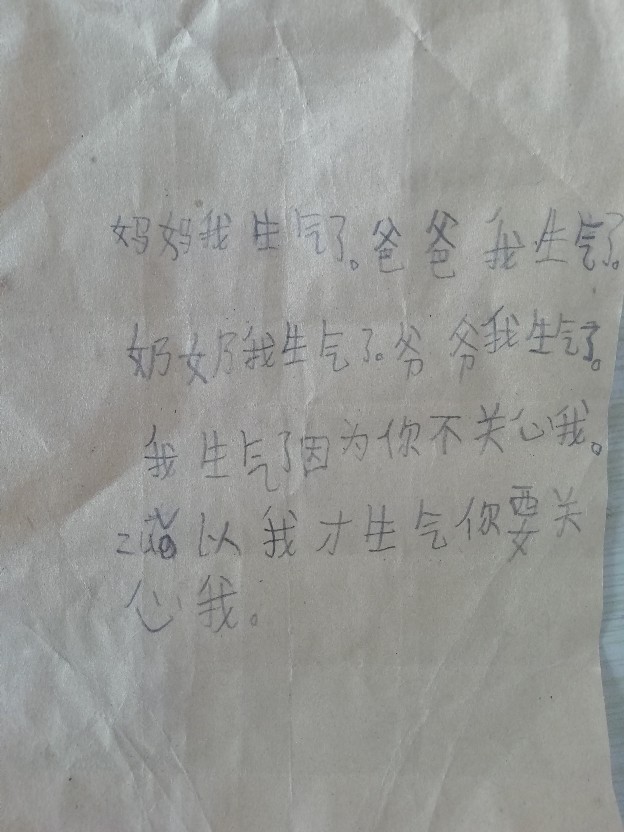 妈妈我生气了。爸爸我生气了。
奶奶我生气了。爷爷我生气了。
我生气了因为你不关心我。
以我才生气你要关
心我。